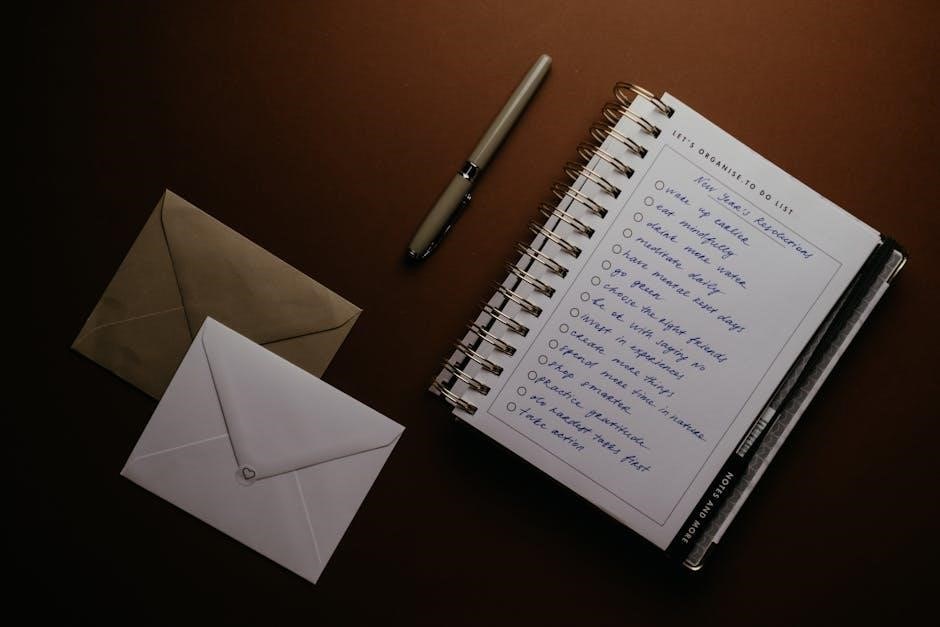 LET'S ORGANISE.TO DO LIST
New Year's Resolutions
wake up earlier
eat mindfully
drink more water
meditate daily
have mental reset days
go green
choose the right friends
be ok with saying no
invest in experiences
create more things
spend more time in nature
shop smarter
practice gratitude
do hardest tasks first
take action
NOTES AND MORE